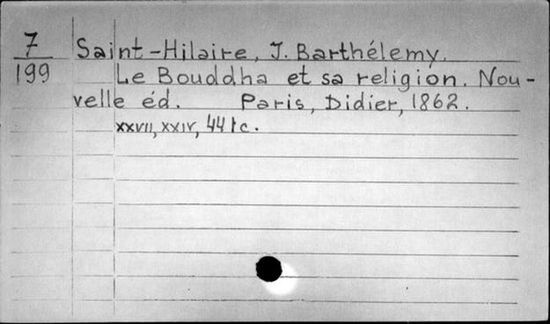 7 Saint-Hilaire, J. Barthélemy.
199 Le Bouddha et sa religion. Nou-
velle éd. Paris, Didier, 1862.
XXVII, XXIV, 441 c.